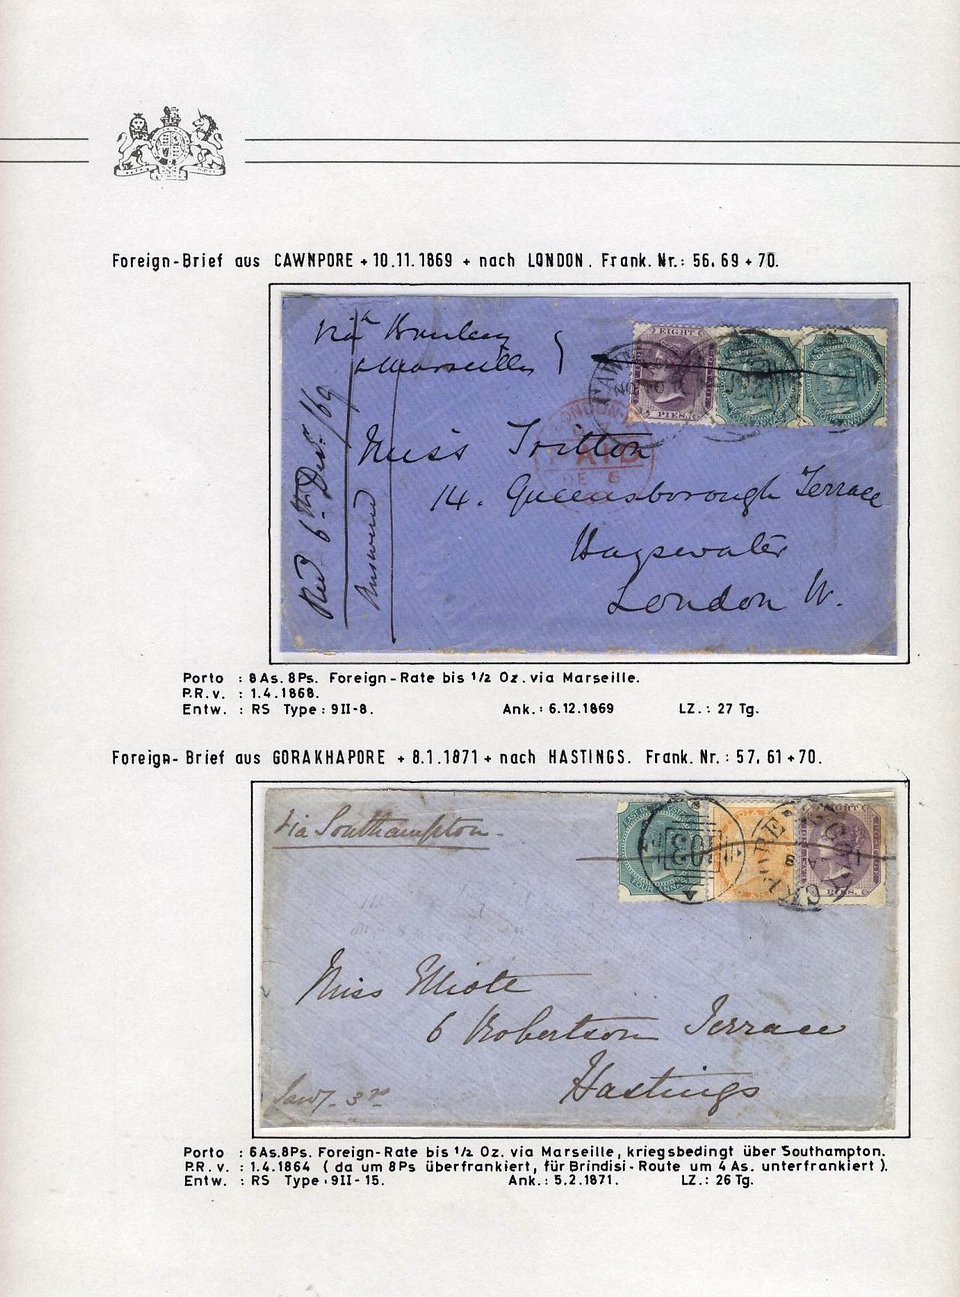 Foreign-Brief aus CAWNPORE + 10.11.1869 + nach LONDON. Frank. Nr.: 56, 69 + 70.
via Bombay
& Marseilles
EIGHT
PIES.
LONDON
PAID
DE 6
Recd 6th Decr. /69
Answered
Miss Tritton
14. Queensborough Terrace
Bayswater
London W.
Porto : 8 As. 8Ps. Foreign-Rate bis 1/2 Oz. via Marseille.
P.R.v. : 1.4.1868.
Entw. : RS Type: 9II-8. Ank.: 6.12.1869 LZ.: 27 Tg.
Foreign-Brief aus GORAKHAPORE + 8.1.1871 + nach HASTINGS. Frank. Nr.: 57, 61 + 70.
via Southampton.
FOUR ANNAS
PIES.
Miss Elliote
6 Robertson Terrace
Hastings
Porto : 6As.8Ps. Foreign-Rate bis 1/2 Oz. via Marseille, kriegsbedingt über Southampton.
P.R.v. : 1.4.1864 ( da um 8Ps überfrankiert, für Brindisi-Route um 4 As. unterfrankiert ).
Entw. : RS Type: 9II-15. Ank.: 5.2.1871. LZ.: 26 Tg.